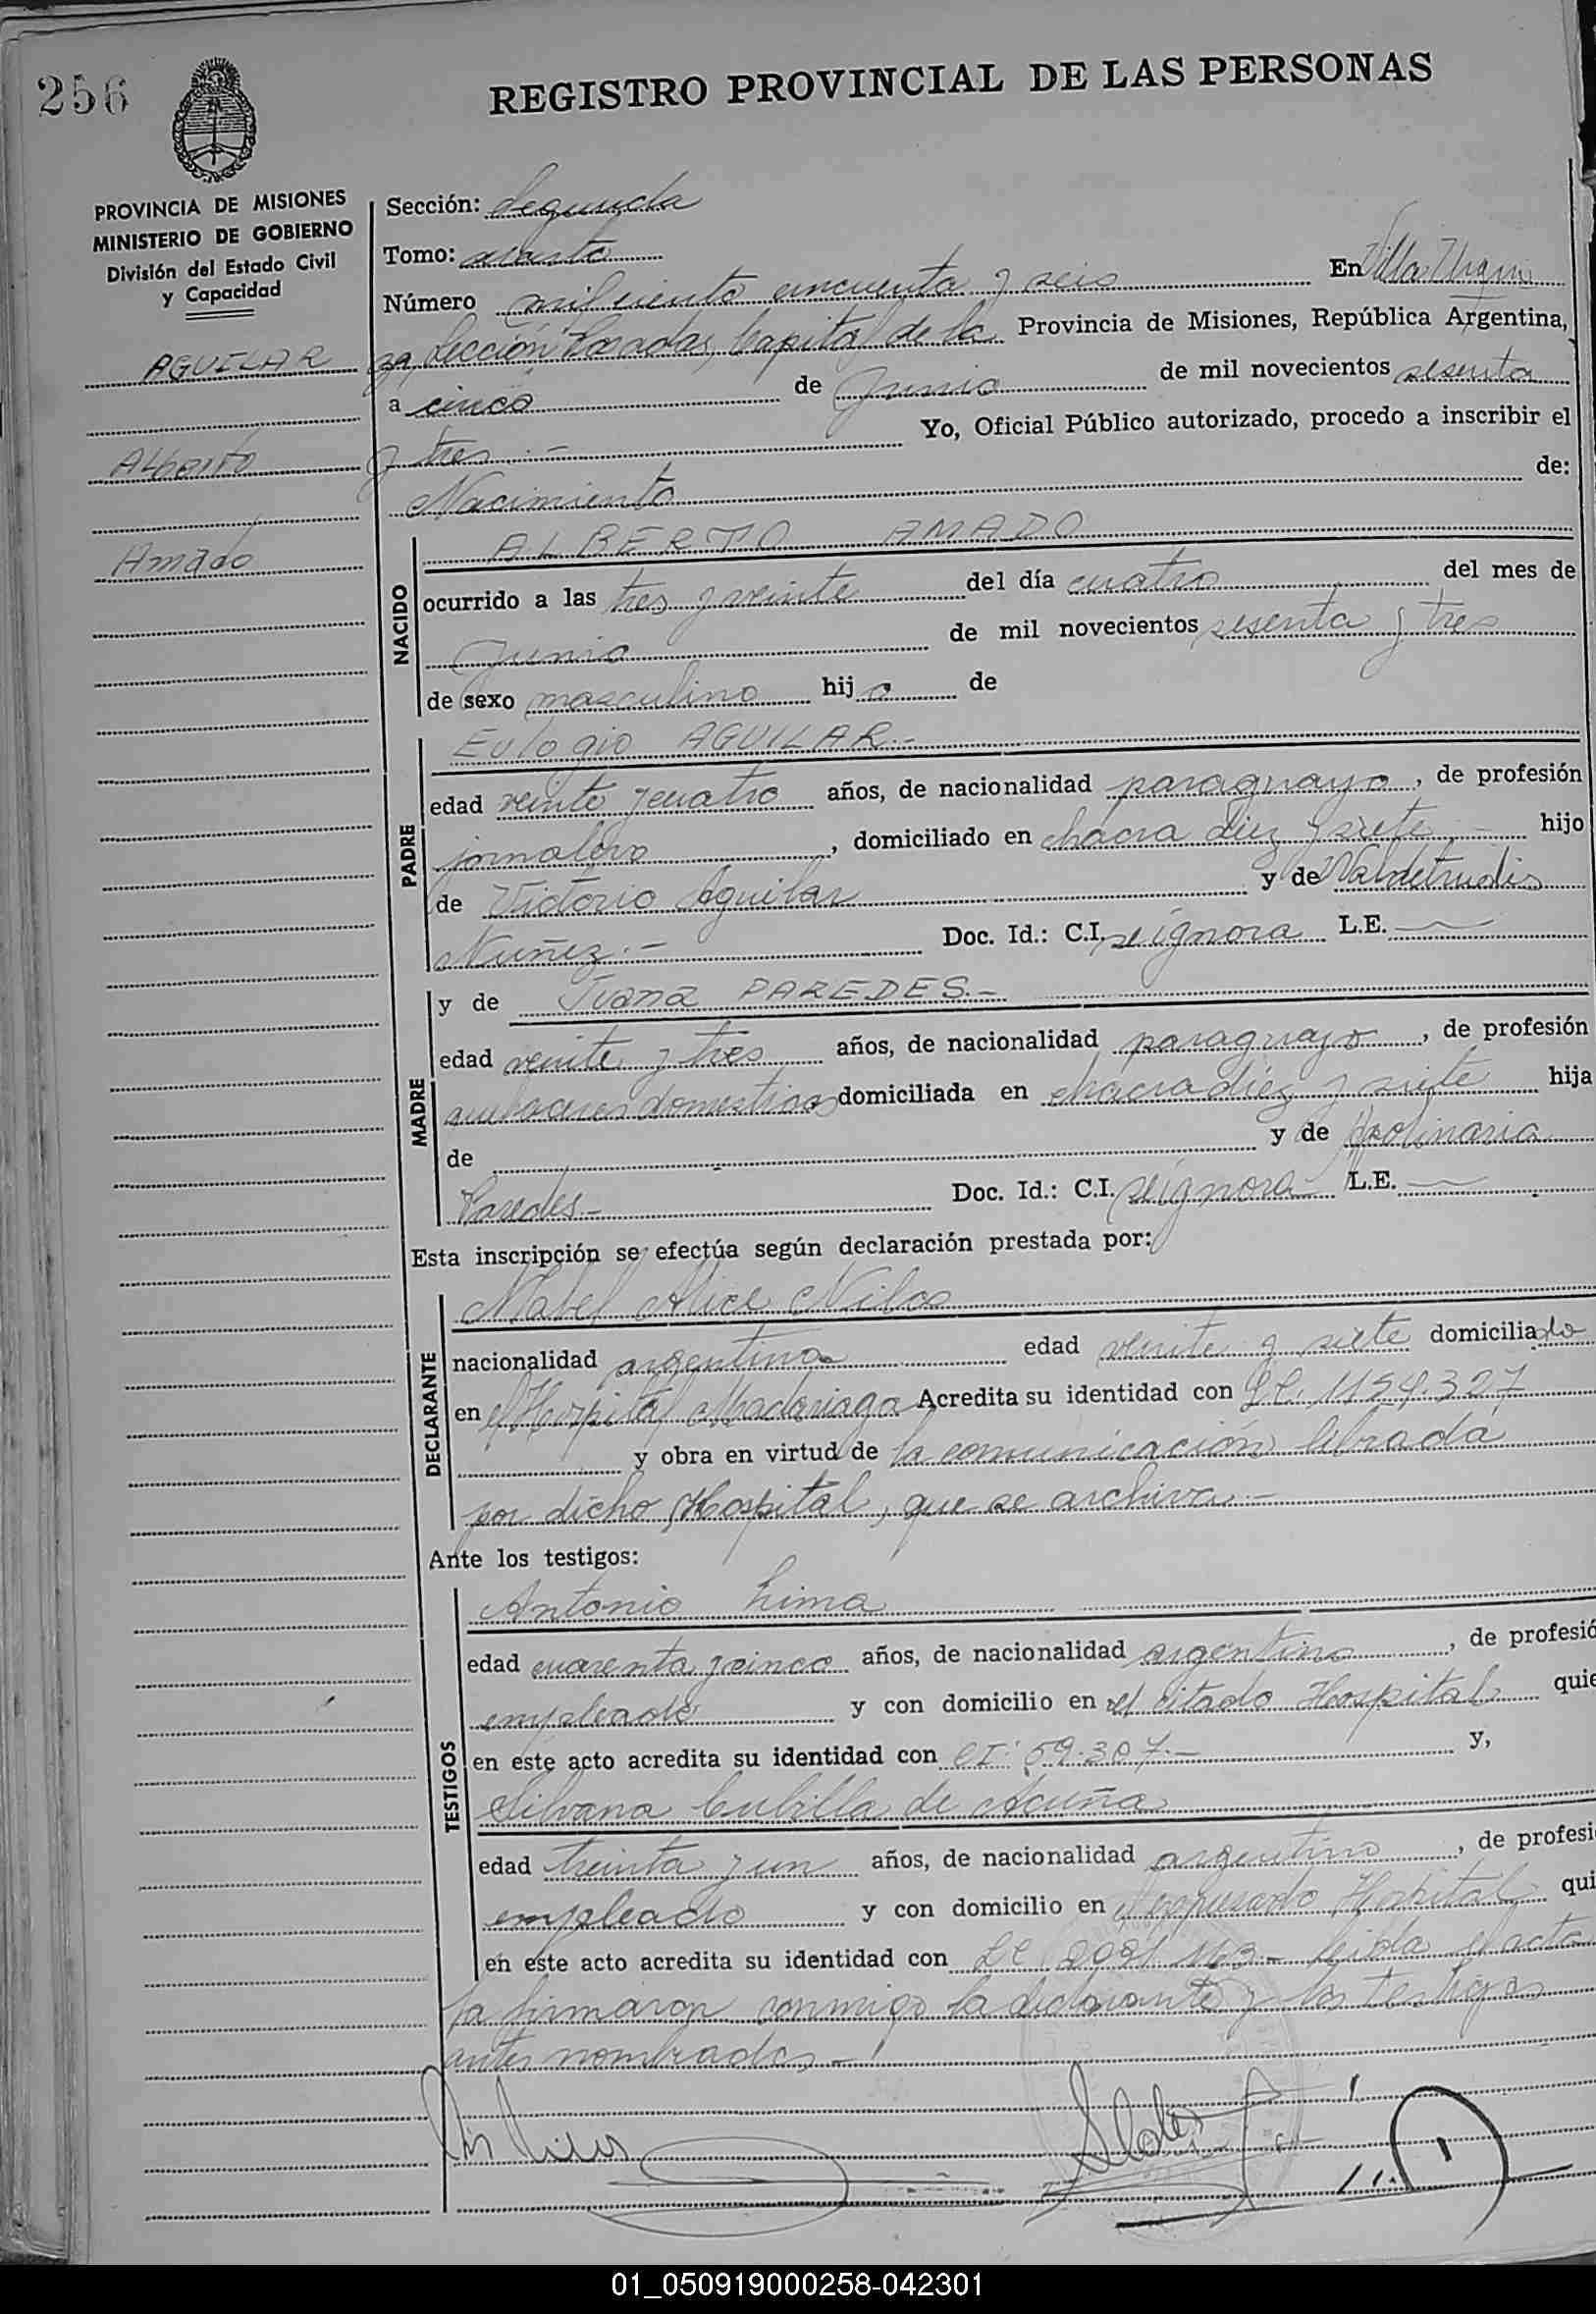 256
REGISTRO PROVINCIAL DE LAS PERSONAS
PROVINCIA DE MISIONES
MINISTERIO DE GOBIERNO
División del Estado Civil
y Capacidad
AGUILAR
Alberto
Amado
Sección: Segunda
Tomo: cuarto
Número mil ciento cincuenta y seis En Villa Urqui
za, Sección Posadas, Capital de la Provincia de Misiones, República Argentina,
a cinco de Junio de mil novecientos sesenta
y tres.- Yo, Oficial Público autorizado, procedo a inscribir el
Nacimiento de:
NACIDO
ALBERTO AMADO
ocurrido a las tres y veinte del día cuatro del mes de
Junio de mil novecientos sesenta y tres
de sexo masculino hijo de
PADRE
Eulogio AGUILAR.-
edad veinte y cuatro años, de nacionalidad paraguayo, de profesión
jornalero, domiciliado en chacra diez y siete.- hijo
de Victorio Aguilar y de Valdetrudis
Nuñez.- Doc. Id.: C.I. se ignora L.E. —
MADRE
y de Juana PAREDES.-
edad veinte y tres años, de nacionalidad paraguayo, de profesión
quehaceres domesticos domiciliada en chacra diez y siete hija
de y de Apolinaria
Paredes.- Doc. Id.: C.I. se ignora L.E. —
Esta inscripción se efectúa según declaración prestada por:
DECLARANTE
Mabel Alice
nacionalidad argentina edad veinte y siete domiciliado
en el Hospital Madariaga Acredita su identidad con 1154.327
y obra en virtud de la comunicación librada
por dicho Hospital, que se archiva.-
Ante los testigos:
TESTIGOS
Antonio Lima
edad cuarenta y cinco años, de nacionalidad argentino, de profesió
empleado y con domicilio en el citado Hospital quie
en este acto acredita su identidad con CI: 59.307.- y,
Silvana Cubilla de Acuña
edad treinta y un años, de nacionalidad argentino, de profesi
empleado y con domicilio en el expresado Hospital qui
en este acto acredita su identidad con leida el acta
la firmaron conmigo la declarante y los testigos
antes nombrados.-
01_050919000258-042301